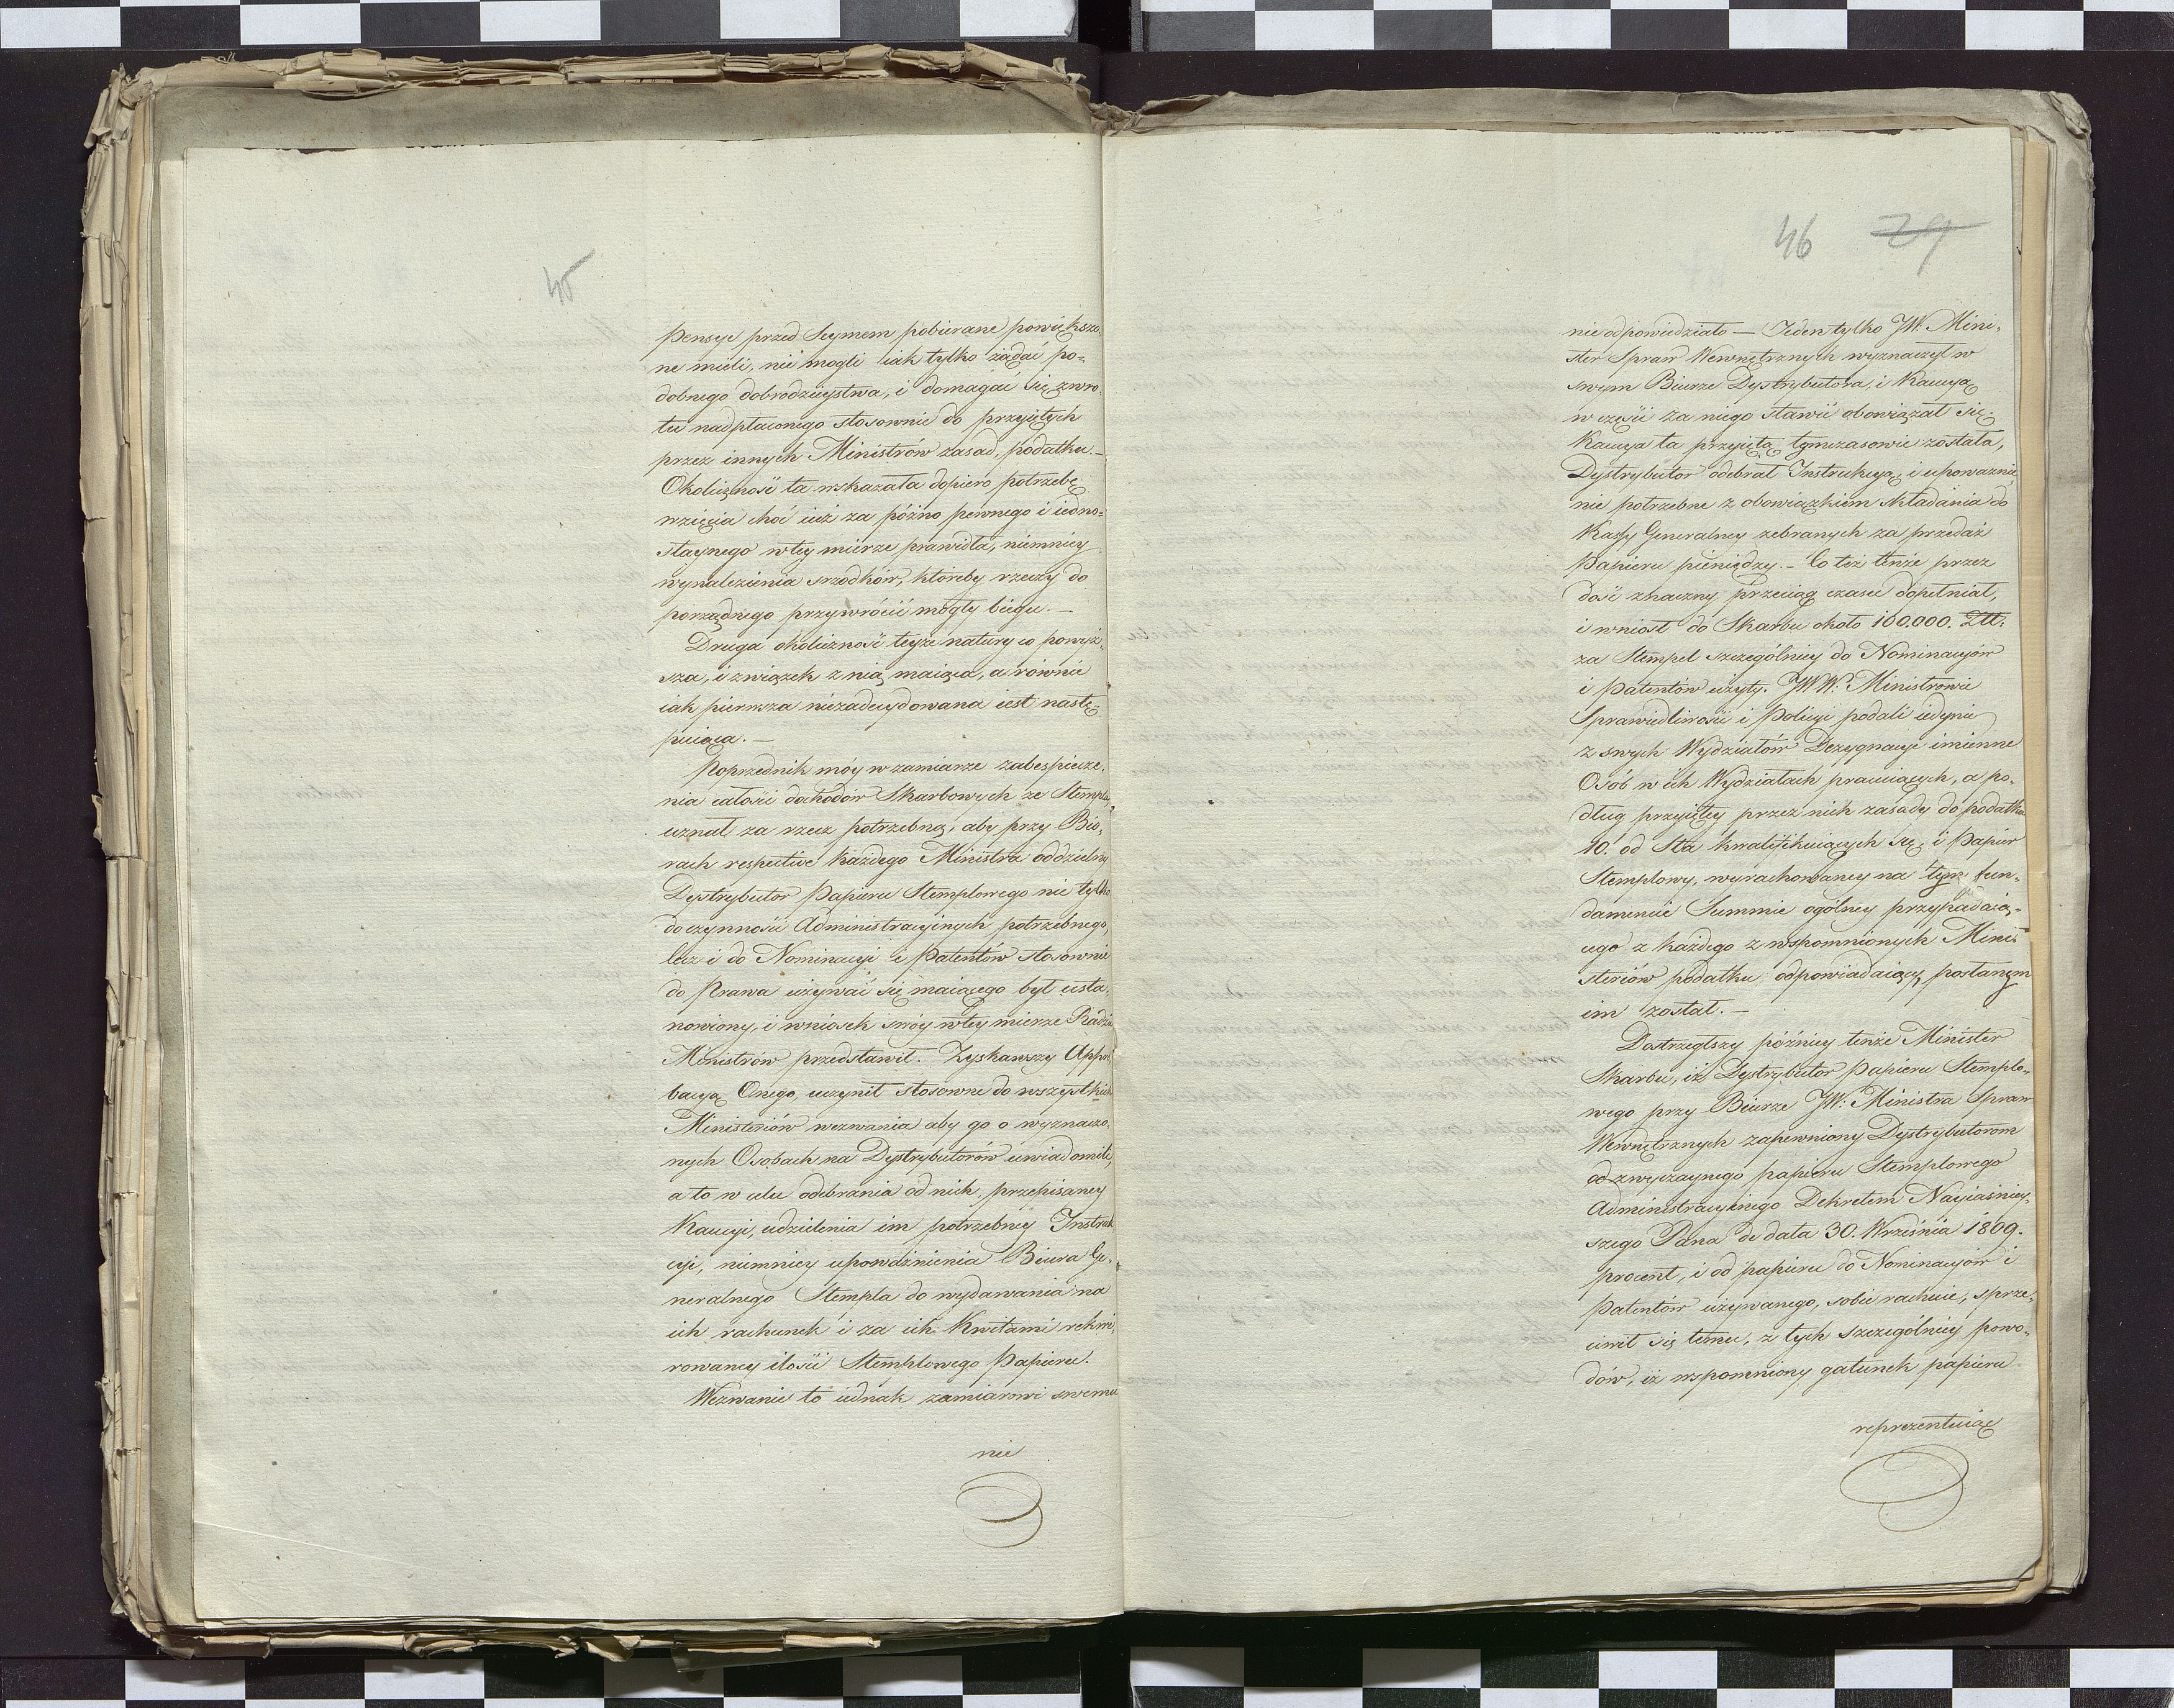 45
pensye przed Seymem pobierane powiększo,
ne mieli, nie mogli iak tylko żądać po-
dobnego dobrodzieystwa, i domagać się zwro,
tu nadpłaconego stosownie do przyiętych
przez innych Ministrów zasad, podatku. —
Okoliczność ta wskazała dopiero potrzebę
wzięcia choć iuż za późno pewnego i iedno-
staynego w tey mierze prawidła, niemniey
wynalezienia srzodków, któreby rzeczy do
porządnego przywrócić mogły biegu. —
Druga okoliczność teyże natury co powyż,
sza, i związek z nią maiąca, a równie
iak pierwsza niezadecydowana iest nastę-
puiąca. —
Poprzednik móy w zamiarze zabespiecze,
nia całości dochodów Skarbowych ze Stempla,
uznał za rzecz potrzebną, aby przy Bió,
rach respective każdego Ministra oddzielny
Dystrybutor Papieru Stemplowego nie tylko
do czynności Administracyinych potrzebnego,
lecz i do Nominacyi i Patentów stosownie
do Prawa używać się maiącego był usta,
nowiony, i wniosek swóy w tey mierze Radzie
Ministrów przedstawił. Zyskawszy Appro
bacyą Onego, uczynił stosowne do wszystkich
Ministeriów wezwania aby go o wyznaczo,
nych Osobach na Dystrybutorów uwiadomili,
a to w celu odebrania od nich przepisaney
Kaucyi, udzielenia im potrzebney Instruk
cyi, niemniey upoważnienia Biura Ge,
neralnego Stempla do wydawania na
ich rachunek i za ich Kwitami rekwi,
rowaney ilości Stemplowego Papieru.
Wezwanie to iednak zamiarowi swemu
nie
46 29
nie odpowiedziało — Ieden tylko JW. Mini,
ster Spraw Wewnętrznych wyznaczył w
swym Biurze Dystrybutora, i Kaucyą
w części za niego stawić obowiązał się.
Kaucya ta przyiętą tymczasowie została,
Dystrybutor odebrał Instrukcyą, i upoważnie
nie potrzebne z obowiązkiem składania do
Kassy Generalney zebranych za przedaż
Papieru pieniędzy. — Co też tenże przez
dość znaczny przeciąg czasu dopełniał,
i wniosł do Skarbu około 100.000. Złł:
za Stempel szczególniey do Nominacyów
i Patentów użyty. JWW. Ministrowie
Sprawiedliwości i Policyi podali iedynie
z swych Wydziałów Dezygnacye imienne
Osób w ich Wydziałach pracuiących, a po,
dług przyiętey przez nich zasady do podatku
10. od Sta kwalifikuiących się, i Papier
Stemplowy, wyrachowaney na tym fun,
damencie Summie ogólney przypadaią-
cego z każdego z wspomnionych Mini-
steriów podatku odpowiadaiący, posłanym
im został. —
Dostrzegłszy późniey tenże Minister
Skarbu, iż Dystrybutor Papieru Stemplo-
wego przy Biurze JW. Ministra Spraw
Wewnętrznych zapewniony Dystrybutorom
od zwyczaynego papieru Stemplowego
Administracyinego Dekretem Nayiaśniey-
szego Pana de data 30. Września 1809.
procent, i od papieru do Nominacyów i
Patentów używanego, sobie rachuie, sprze,
ciwił się temu, z tych szczególniey powo-
dów, iż wspomniony gatunek papieru
reprezentuiąc